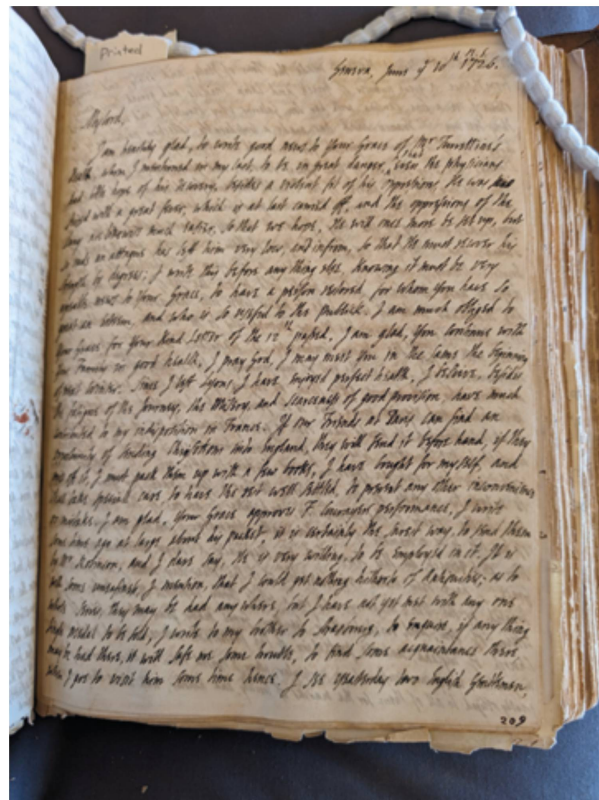 Printed
Geneva, June ye 10th N.S. 1726.
Mylord,
I am heartily glad, to write good news to Your Grace of Mr Turrettin's
health, whom I mentioned in my last, to be in great danger, that even the physicians
had little hope of his recovery, besides a violent fit of his oppressions, He was
seized with a great fever, which is at last carried off, and the oppressions of the
lung are likewise much easier, so that we hope, He will once more be set up, but
so rude an attaque has left him very low, and infirm, so that He must recover his
strength by degrees; I write this before any thing else, Knowing it must be very
agreable news to Your Grace, to have a person restored, for whom You have so
great an esteem, and who is so usefull to the publick. I am much obliged to
Your Grace for Your Kind Letter of the 12th passed, I am glad, You continue with
Your Family in good health, I pray God, I may meet You in the same the beginning
of next winter. Since I left Lyons, I have enjoyed perfect health, I believe, besides
the fatigues of the Journey, the misery, and scarceness of good provision, have much
contributed to my indisposition in France. If our Friends at Paris can find an
opportunity of sending into England, they will send it before hand, if they
I must pack them up with a few books, I have bought for myself, and
shall take special care to have the rest well settled, to prevent any other inconveniency
or mistake. I am glad, Your Grace approves F. performance, I write
some time ago at large about his packet, it is certainly the surest way, to send them
to Mr Robinson, and I dare say, He is very willing, to be employed in it. It is
with some uneasiness, I mention, that I could get nothing hitherto of Antiquities; as to
they may be had any where, but I have not yet met with any one
single medal to be sold, I write to my brother to Hannover, to enquire, if any thing
may be had there, it will safe me some trouble, to find some acquaintance there
when I go to visit him some time hence. I see yesterday two English Gentlemen,
209